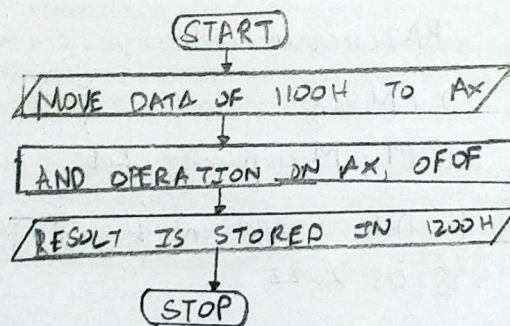 START
MOVE DATA OF 1100H TO AX
AND OPERATION ON AX, OFOF
RESULT IS STORED IN 1200H
STOP